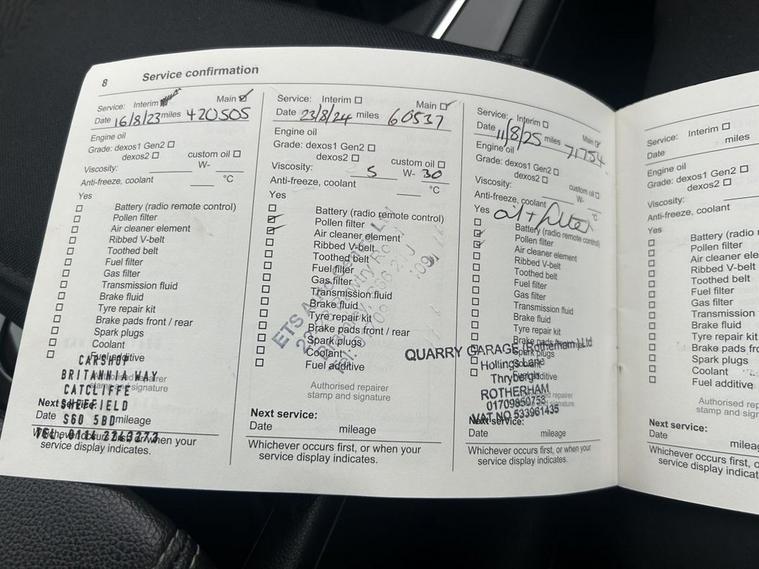 8 Service confirmation
Service: Interim Main
Date 16/8/23 miles 420505
Engine oil
Grade: dexos1 Gen2
dexos2 custom oil
Viscosity: W-
Anti-freeze, coolant °C
Yes
Battery (radio remote control)
Pollen filter
Air cleaner element
Ribbed V-belt
Toothed belt
Fuel filter
Gas filter
Transmission fluid
Brake fluid
Tyre repair kit
Brake pads front / rear
Spark plugs
Coolant
Fuel additive
CARSHOP
BRITANNIA WAY
CATCLIFFE
SHEFFIELD
S60 5BD
and signature
Next service:
Date mileage
Whichever occurs first, or when your
service display indicates.
Service: Interim Main
Date 23/8/24 miles 60537
Engine oil
Grade: dexos1 Gen2
dexos2 custom oil
Viscosity: 5 W- 30
Anti-freeze, coolant °C
Yes
Battery (radio remote control)
Pollen filter
Air cleaner element
Ribbed V-belt
Toothed belt
Fuel filter
Gas filter
Transmission fluid
Brake fluid
Tyre repair kit
Brake pads front / rear
Spark plugs
Coolant
Fuel additive
ETS
Authorised repairer
stamp and signature
Next service:
Date mileage
Whichever occurs first, or when your
service display indicates.
Service: Interim Main
Date 11/8/25 miles 71754
Engine oil
Grade: dexos1 Gen2
dexos2 custom oil
Viscosity: W-
Anti-freeze, coolant °C
Yes oil + filter
Battery (radio remote control)
Pollen filter
Air cleaner element
Ribbed V-belt
Toothed belt
Fuel filter
Gas filter
Transmission fluid
Brake fluid
Tyre repair kit
Brake pads front / rear
Spark plugs
QUARRY GARAGE (Rotherham) Ltd
Hollings Lane
Thrybergh
ROTHERHAM
01709850753
VAT NO 533961435
Next service:
Date mileage
Whichever occurs first, or when your
service display indicates.
Service: Interim
Date miles
Engine oil
Grade: dexos1 Gen2
dexos2
Viscosity:
Anti-freeze, coolant
Yes
Battery (radio
Pollen filter
Air cleaner ele
Ribbed V-belt
Toothed belt
Fuel filter
Gas filter
Transmission
Brake fluid
Tyre repair kit
Brake pads fr
Spark plugs
Coolant
Fuel additive
Authorised rep
stamp and sign
Next service:
Date mileag
Whichever occurs first, o
service display indicat